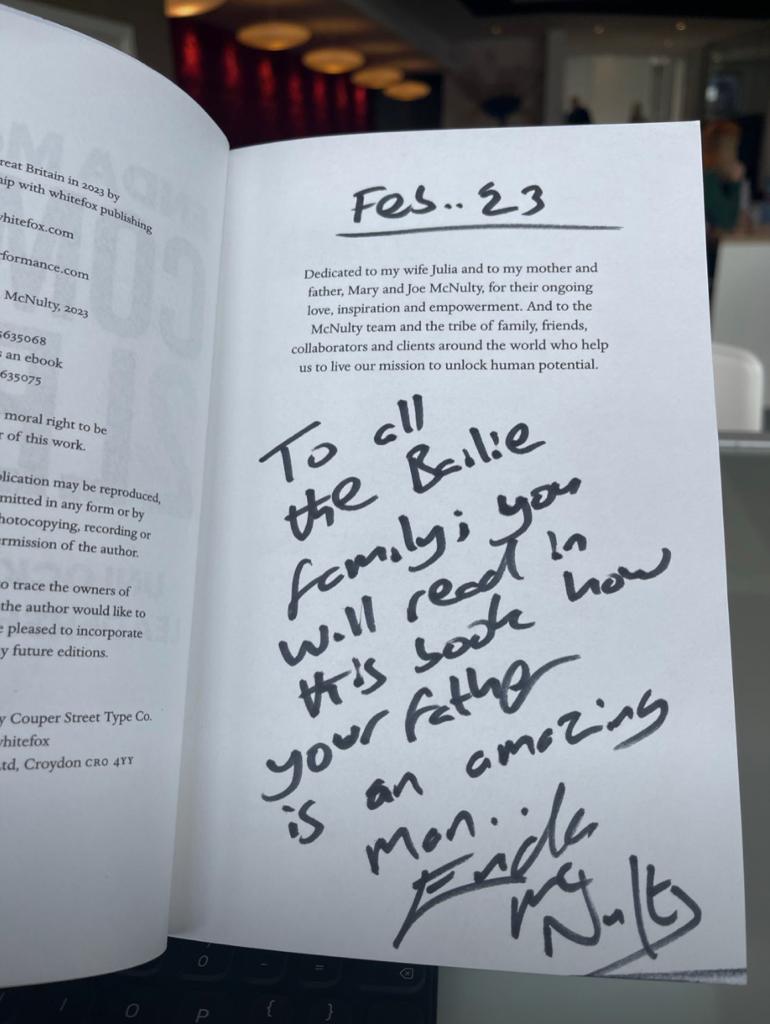 reat Britain in 2023 by
ip with whitefox publishing
hitefox.com
formance.com
McNulty, 2023
5635068
s an ebook
635075
moral right to be
r of this work.
plication may be reproduced,
mitted in any form or by
hotocopying, recording or
ermission of the author.
to trace the owners of
the author would like to
e pleased to incorporate
y future editions.
y Couper Street Type Co.
whitefox
td, Croydon CR0 4YY
Feb.. 23
Dedicated to my wife Julia and to my mother and
father, Mary and Joe McNulty, for their ongoing
love, inspiration and empowerment. And to the
McNulty team and the tribe of family, friends,
collaborators and clients around the world who help
us to live our mission to unlock human potential.
To all
the Bailie
family; you
will read in
this book how
your father
is an amazing
man...
Enda
McNulty
0 - =
/ O P { }